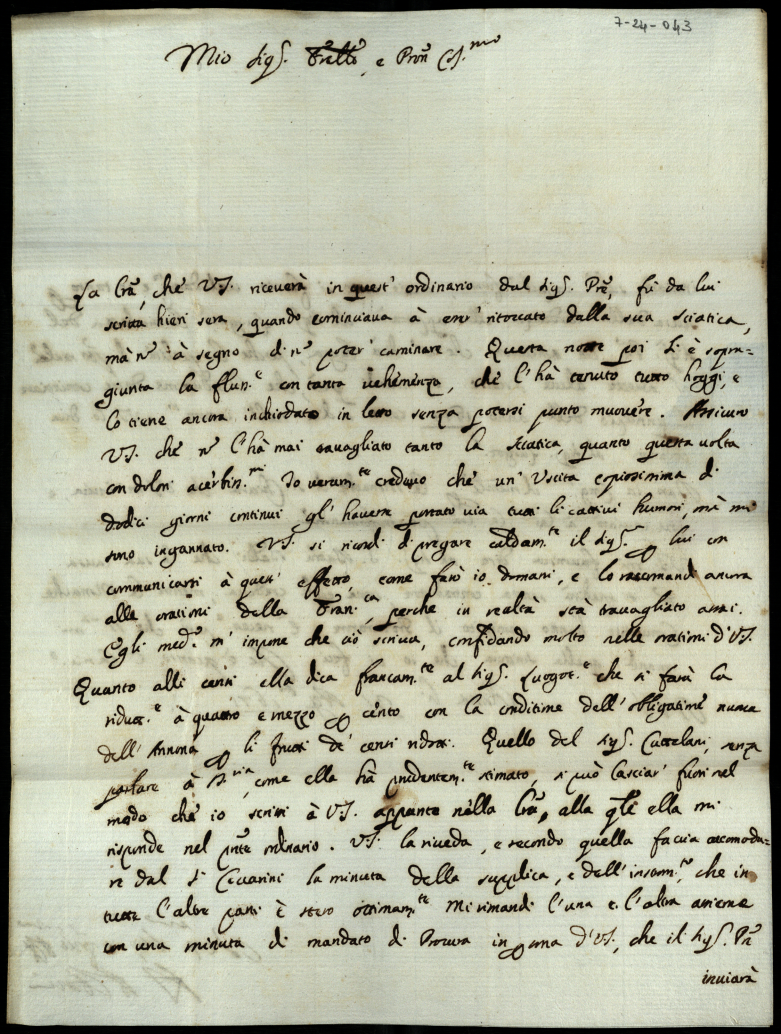 7-24-043
Mio Sig.r Fr̃ello, e Pròn Col.mo
La Lrã, che V.S. riceverà in quest' ordinario dal Sig.r Prẽ, fù da lui
scritta hieri sera, quando cominciaua à esser' ritoccato dalla sua sciatica,
mà nõ à segno di nõ poter' caminare. Questa notte poi Li è sopra=
giunta la flun.e con tanta uehemenza, che l'hà tenuto tutto hoggi, e
lo tiene ancora inchiodato in letto senza potersi punto muouere. Assicuro
V.S. che nõ l'hà mai trauagliato tanto la sciatica, quanto questa uolta
con dolori acerbiss.mi Io veram.te credeuo che un' Vscita copiosissima di
dodici giorni continui gl' hauesse portato uia tutti li cattiui humori, mà mi
sono ingannato. V.S. si ricordi di pregare caldam.te il Sig.r p lui con
communicarsi à quest' effetto, come farò io domani, e lo raccomandi ancora
alle orationi della Fran.ca, perche in realtà stà trauagliato assai.
Egli med.o m' impone che ciò scriua, confidando molto nelle orationi d'V.S.
Quanto alli censi ella dica francam.te al Sig.r Luogot.e che si farà la
riduz.e à quattro e mezzo p cento con la conditione dell' obligatione nuoua
dell' Annona p li frutti de' censi ridotti. Quello del Sig.r Castelani, senza
parlare à come ella hà prudentem.te stimato, si può lasciar' fuori nel
modo che io scrissi à V.S. appunto nella Lrã, alla qle ella mi
risponde nel pñte ordinario. V.S. la riueda, e secondo quella faccia accomoda=
re dal S.r Ceccarini la minuta della supplica, e dell' che in
tutte l'altre parti è steso ottimam.te Mi rimandi l'una e l'altra assieme
con una minuta di mandato di Procura in psona d'V.S., che il Sig.r Prẽ
inuiarà